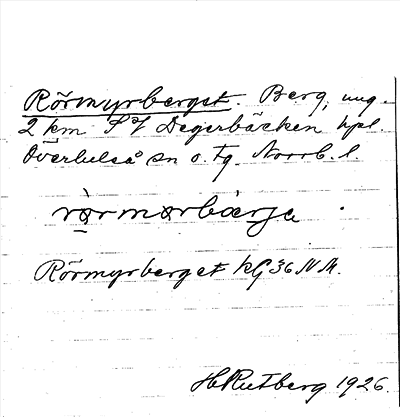 Rörmyrberget. Berg, ung.
2 km SV Degerbäcken hpl.
Överluleå sn o. tg. Norrb. l.
Rörmyrberget kG 36 NM.
H Rutberg 1926.